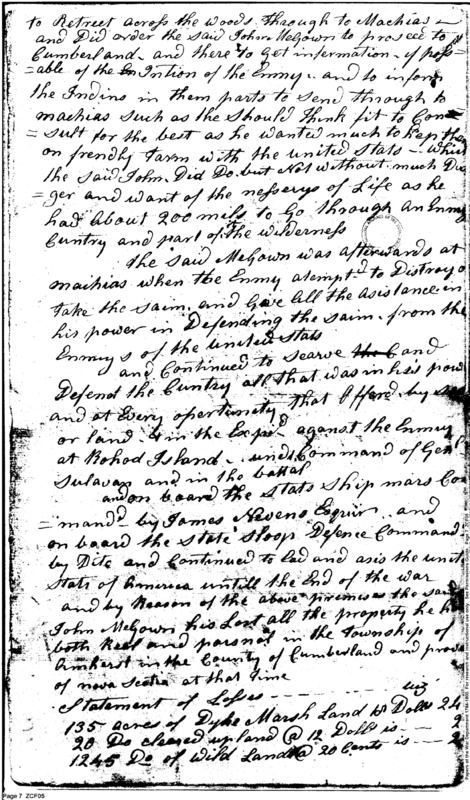 to Retreet across the woods. through to Machias —
and Did order the said John McGown to proseed to
Cumberland. and there to Get information if poss=
=able of the Intion of the Enmy. and to inform
the Indins in them parts to send through to
machias such as the Should think fit to Con=
=sult for the best as he wanted much to kep them
on frendly tarm with the united Stats — which
the said John. Did Do. but Not without much Dan
ger and want of the nesserys of Life as he
had About 200 mels to Go through an Enmy
Cuntry and part of the wilderness
The said McGown was afterwards at
maihias when the Enmy atempt.d to Distroy o
take the saim. and Give all the asistance in
his power in Defending the saim. from the
Enmuy s of the united Stats
and Continued to searve and
Defend the Cuntry all that was in his pow
and at Every opertunity that offered by sea
or land & in the Exped. aganst the Enmuy
at Rohod Island. under Command of Genl
Sulavan and in the battal
and on board the Stats Ship mars Com
=mand.d by James Neveno Esqier. and
on board the State Sloop Defence Command
by Dito and Continued to Ead and asis the unit
Stats of America untill the End of the war
and by Reason of the above premises the said
John McGown his Lost all the property he h
both Reel and parsnal in the Township of
Amherst in the County of Cumberland and prov
of nova Scotia at that time
Statement of Losses — viz
135 acres of Dyke Marsh Land Dolls 24
20 Do cleared upland @ 12 Dolls is — 2
1245 Do of Wild Land @ 20 Cents is — 2
Page 7 ZCF05